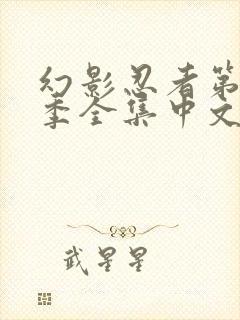 幻影忍者第
季全集中文
武星星